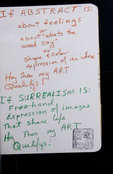 If ABSTRACT is:
about feelings
or
about what's the
word say
or
shape & color
expression of an idea
Hm, Then my ART
Qualifys!
If SURREALISM IS:
Free-hand
Expression of images
That share life
Hm, Then my ART
Qualifys!